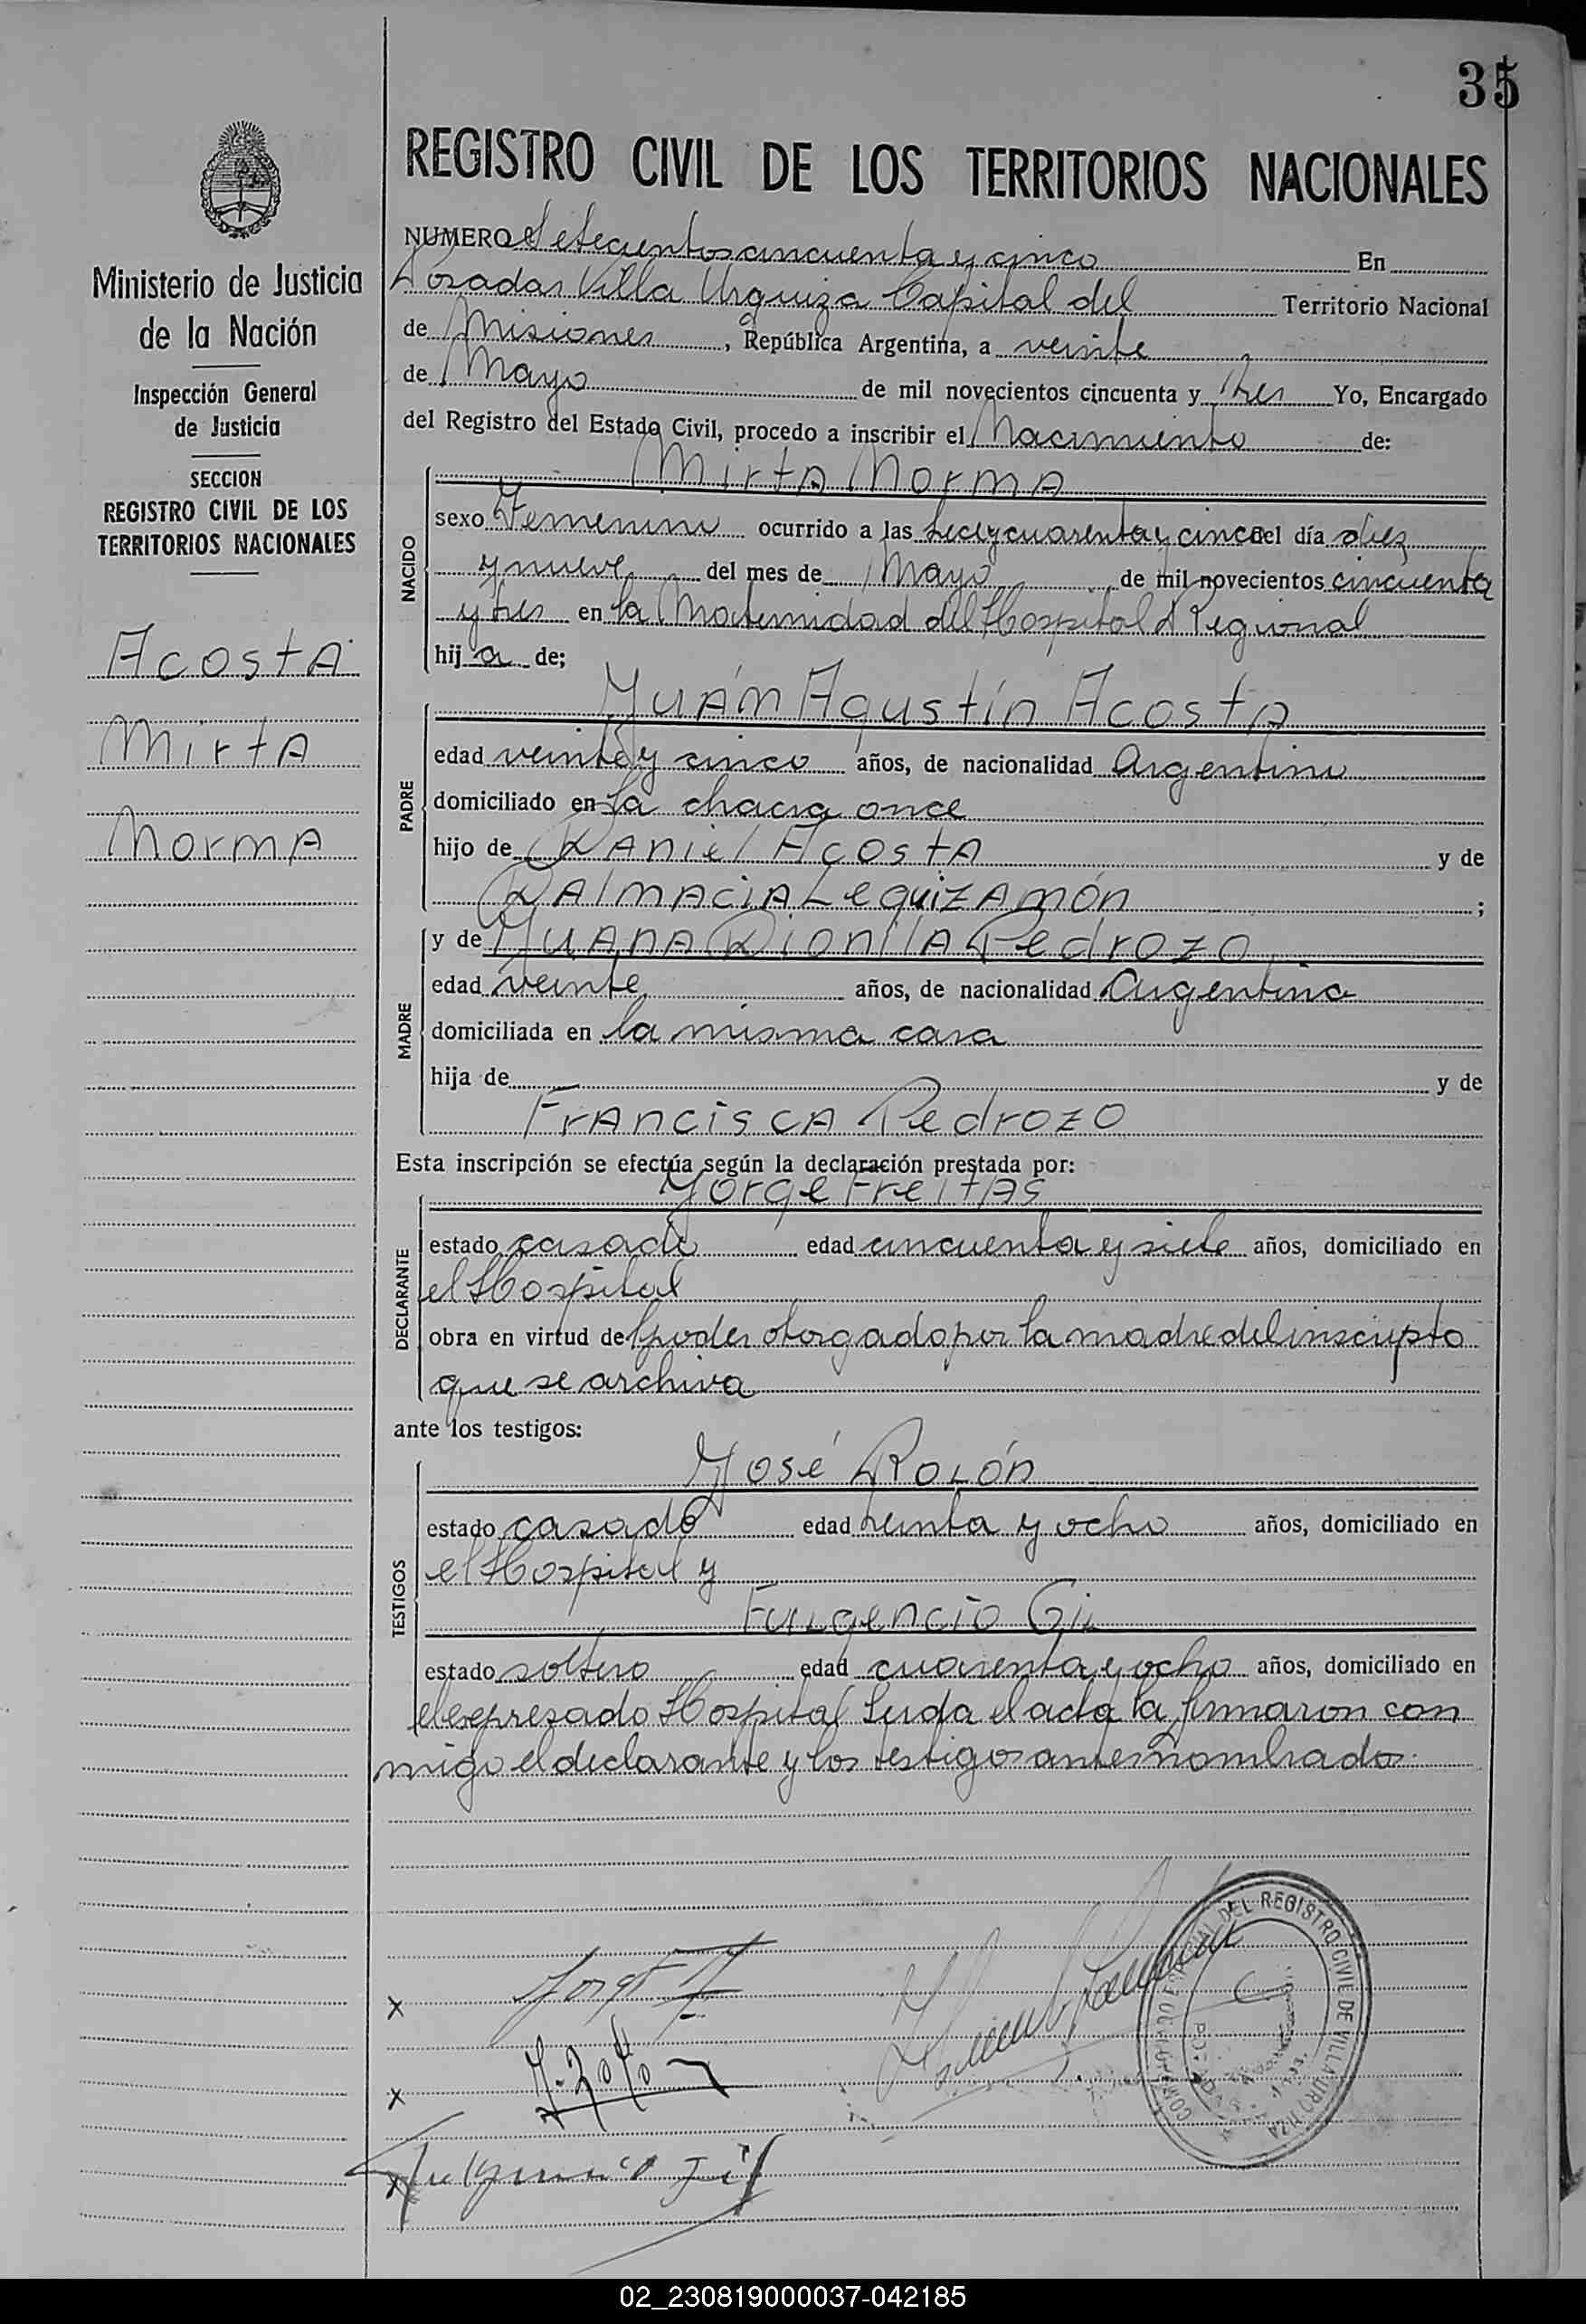 35
REGISTRO CIVIL DE LOS TERRITORIOS NACIONALES
Ministerio de Justicia
de la Nación
Inspección General
de Justicia
SECCION
REGISTRO CIVIL DE LOS
TERRITORIOS NACIONALES
Acosta
Mirta
Norma
NUMERO Setecientos cincuenta y cinco En
Posadas Villa Urquiza Capital del Territorio Nacional
de Misiones, República Argentina, a veinte
de Mayo de mil novecientos cincuenta y tres Yo, Encargado
del Registro del Estado Civil, procedo a inscribir el Nacimiento de:
Mirta Norma
NACIDO
sexo Femenino ocurrido a las seis y cuarenta y cinco del día diez
y nueve del mes de Mayo de mil novecientos cincuenta
y tres en la Maternidad del Hospital Regional
hija de;
Juan Agustín Acosta
PADRE
edad veinte y cinco años, de nacionalidad Argentino
domiciliado en la chacra once
hijo de Daniel Acosta y de
Dalmacia Leguizamón ;
MADRE
y de Juana Dionila Pedrozo
edad veinte años, de nacionalidad Argentina
domiciliada en la misma casa
hija de y de
Francisca Pedrozo
Esta inscripción se efectúa según la declaración prestada por:
Jorge Freitas
DECLARANTE
estado casado edad cincuenta y siete años, domiciliado en
el Hospital
obra en virtud del poder otorgado por la madre del inscripto
que se archiva
ante los testigos:
José Rolón
TESTIGOS
estado casado edad treinta y ocho años, domiciliado en
el Hospital y
Fulgencio Gil
estado soltero edad cuarenta y ocho años, domiciliado en
el expresado Hospital Leida el acta la firmaron con
migo el declarante y los testigos antes nombrados.
DEL REGISTRO CIVIL DE VILLA URQUIZA
x
x
x Fulgencio Gil
02_230819000037-042185